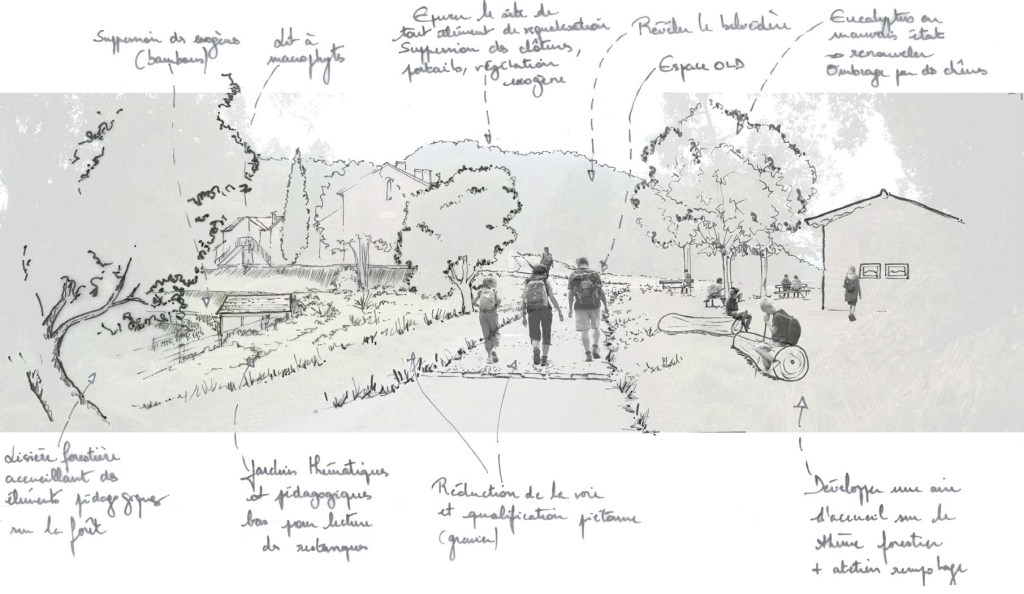 Suppression des exogènes
(bambous)
Lit à
macrophytes
Epurer le site de
tout élément de requalification
Suppression des clôtures,
portails, végétation
exogène
Révéler le belvédère
Espace OLD
Eucalyptus en
mauvais état
→ renouveler
Ombrage par des chênes
Lisière forestière
accueillant des
éléments pédagogiques
sur la forêt
Jardins thématiques
et pédagogiques
bas pour lecture
des restanques
Réduction de la voie
et qualification piétonne
(gravier)
Développer une aire
d'accueil sur le
thème forestier
+ atelier rempotage